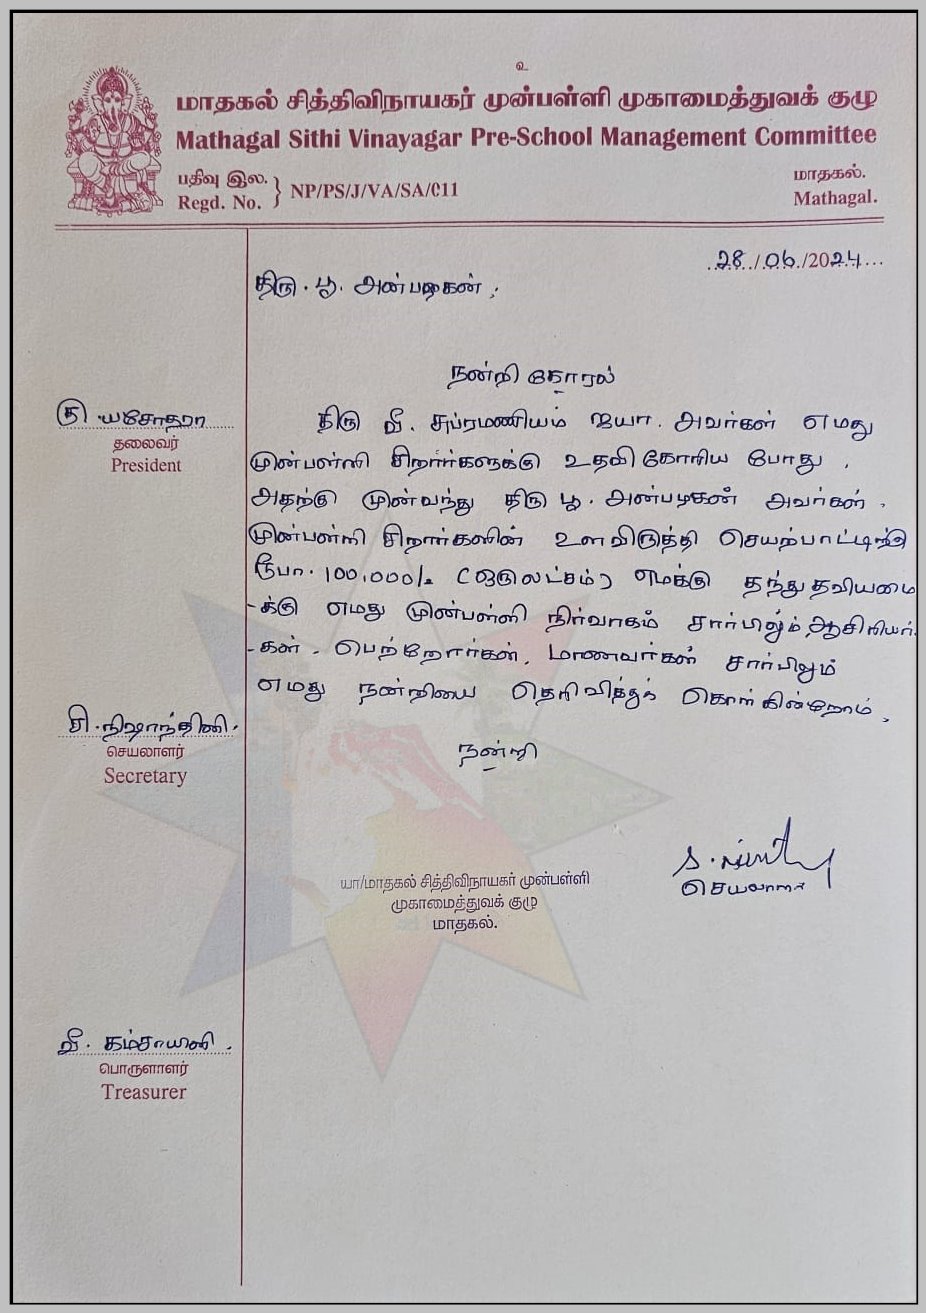 உ
மாதகல் சித்திவிநாயகர் முன்பள்ளி முகாமைத்துவக் குழு
Mathagal Sithi Vinayagar Pre-School Management Committee
பதிவு இல.
Regd. No. } NP/PS/J/VA/SA/011
மாதகல்.
Mathagal.
28/06/2024
திரு. பூ. அன்பழகன்,
நன்றி கோரல்
திரு வீ. சுப்ரமணியம் ஐயா. அவர்கள் எமது
முன்பள்ளி சிறார்களுக்கு உதவி கோரிய போது,
அதற்கு முன்வந்து திரு பூ. அன்பழகன் அவர்கள்,
முன்பள்ளி சிறார்களின் உளவிருத்தி செயற்பாட்டிற்கு
ரூபா. 100,000/= (ஒருலட்சம்) எமக்கு தந்துதவியமை
-க்கு எமது முன்பள்ளி நிர்வாகம் சார்பிலும், ஆசிரியர்
-கள், பெற்றோர்கள், மாணவர்கள் சார்பிலும்
எமது நன்றியை தெரிவித்துக் கொள்கின்றோம்,
நன்றி
கு. யசோதரா
தலைவர்
President
சி. நிஷாந்தினி
செயலாளர்
Secretary
யா/மாதகல் சித்திவிநாயகர் முன்பள்ளி
முகாமைத்துவக் குழு
மாதகல்.
செயலாளர்
வீ. கம்சாயினி
பொருளாளர்
Treasurer